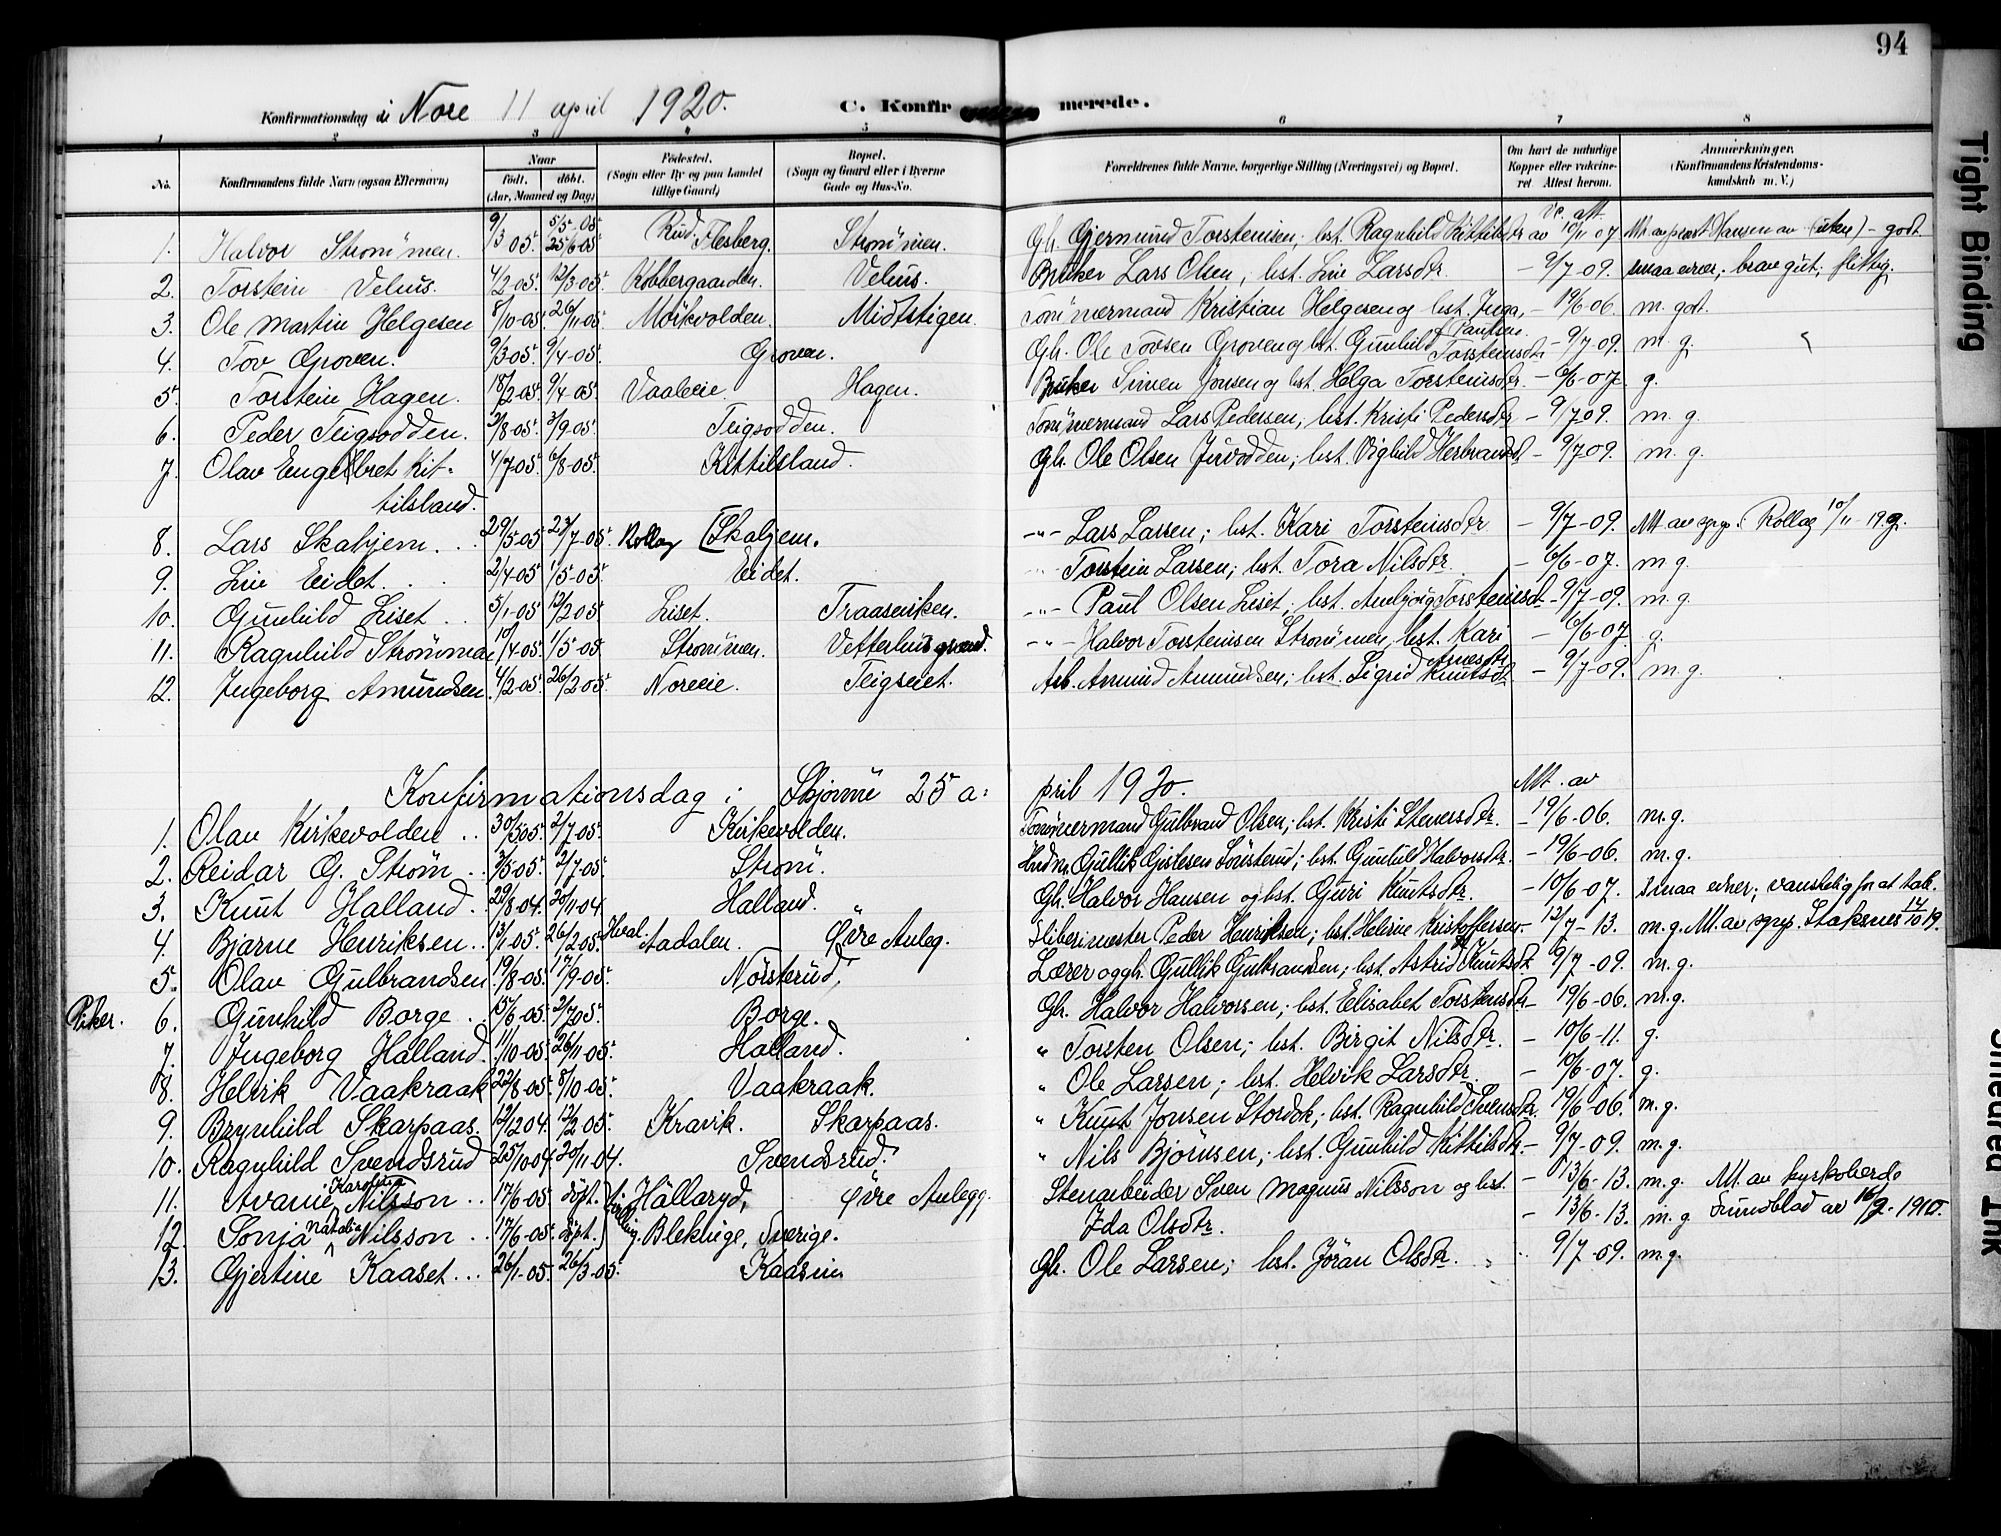 94
Konfirmationsdag i Nore 11 april 1920. C. Konfir merede.
1 2 3 4 5 6 7 8
No. Konfirmandens fulde Navn (ogsaa Efternavn) Naar født, døbt. (Aar, Maaned og Dag) Fødested. (Sogn eller By og paa Landet tillige Gaard) Bopæl. (Sogn og Gaard eller i Byerne Gade og Hus-No. Forældrenes fulde Navne, borgerlige Stilling (Næringsvei) og Bopæl. Om havt de naturlige Kopper eller vakcineret Attest herom. Anmerkninger. (Konfirmandens Kristendomskundskab m. V.)
1. Halvor Strømmen. 9/3 05. 5/5-05 25/6-05 Rud. Flesberg. Strømmen. Gh. Gjermund Torstensen; hst. Ragnhild Kittilsdtr av 10/11 07 Att. av prest Hansen av (uten) - godt
2. Torstein Velus. 4/2-05. 12/3-05. Kobbergaarden. Velus. Bruker Lars Olsen, hst. Live Larsdtr. - 9/7-09. smaa evner; brav gut, flittig.
3. Ole Martin Helgesen 8/10-05. 26/11-05. Mørkvolden. Midtstigen. Tømmermand Kristian Helgesen og hst. Inga Paulsen. - 19/6-06. m. godt.
4. Tov Groven. 9/3 05. 9/4-05. Groven. Gh. Ole Tovsen Groven og hst. Gunhild Torsteinsdtr - 9/7-09. m. g.
5. Torstein Hagen. 18/2-05. 9/4-05. Vaaleie. Hagen. Bruker Simen Jonsen og hst. Helga Torsteinsdtr. - 6/6-07. g.
6. Peder Teigsodden. 3/8-05. 3/9-05. Teigsodden. Tømmermand Lars Pedersen; hst. Kristi Pedersdtr - 9/7 09. m. g.
7. Olav Engelbret Kit- 4/7-05. 6/8-05. Kittilsland. Gh. Ole Olsen Juvodden; hst. Vighild Herbrandsdtr - 9/7 09. m. g.
tilsland.
8. Lars Skahjem. 29/5-05 23/7-05. Rollag (Skahjem. -"- Lars Larsen; hst. Kari Torsteinsdtr - 9/7-09. Att. av sgpr. i Rollag 10/11 19 g.
9. Live Eidet. 2/4-05 1/5-05. Eidet. Torstein Larsen; hst. Tora Nilsdtr. - 6/6-07. m g.
10. Gunhild Liset 5/1-05 12/2 05. Liset. Traaseviken. -"- Paul Olsen Liset; hst. Ambjørg Torsteinsdtr - 9/7-09. m. g.
11. Ragnhild Strømmen 10/4-05. 1/5-05 Strømmen. Vetterhus grænd. -"- Halvor Torsteinsen Strømmen, hst. Kari Arnesdtr - 6/6-07 g.
12. Ingeborg Amundsen. 4/2-05. 26/2 05. Noreeie. Teigseiet. Arb. Amund Amundsen; hst. Sigrid Knutsdtr - 9/7-09. m. g.
Konfirmationsdag i Skjønne 25 april 1920. Att. av
1. Olav Kirkevolden 30/5 05. 2/7-05. Kirkevolden. Tømmermand Gulbrand Olsen; hst. Kristi Steversdtr. - 19/6-06. m.g.
2. Reidar G. Strøm 3/5-05. 2/7-05. Strøm. Gullik Gislesen Sønsterud; hst. Gunhild Halvorsdtr. - 19/6-06. m.g.
3. Knut Halland 29/8-04. 20/11-04. Halland. Gh. Halvor Hansen og hst. Guri Knutsdtr. - 10/6-07. smaa evner; vanskelig for at tale.
4. Bjarne Henriksen 13/1-05. 26/2 05. Hval. Aadalen. Øvre Anleg. Slibesmester Peder Henriksen; hst. Helene Kristoffersen - 12/7-13. m. g. Att. av sgpr. Staksnes 14/10 19.
5. Olav Gulbrandsen 19/8-05. 17/9-05. Nørsterud. Lærer og gh. Gullik Gulbrandsen; hst. Astrid Knutsdtr 9/7-09. m.g.
Piker. 6. Gunhild Borge 15/6-05. 2/7 05. Borge. Gh. Halvor Halvorsen; hst. Elisabet Torsteinsdtr - 19/6-06. m.g.
7. Ingeborg Halland. 11/10-05. 26/11-05. Halland. " Torsten Olsen; hst. Birgit Nilsdtr. - 10/6-11. g.
8. Helvik Vaakraak 22/8-05. 8/10-05. Vaakraak. " Ole Larsen; hst. Helvik Larsdtr. - 10/6-07. g.
9. Brynhild Skarpaas. 12/12 04. 12/2-05. Kravik. Skarpaas. " Knut Jonsen Stordok; hst. Ragnhild Svensdtr. 19/6-06. m. g.
10. Ragnhild Svendsrud 25/10-04. 20/11-04. Svendsrud. " Nils Bjørnsen; hst. Gunhild Kittilsdtr. - 9/7-09. m.g.
11. Karolina Nilsson 17/6-05. døpt. Hällaryd, Øvre Anlegg. Stenarbeider Sven Magnus Nilsson og hst. - 13/6-13. m. g. Att. av kyrkoherde
12. Sonja Natalia Nilsson 17/6-05. døpt. Blekinge, Sverige. Ida Olsdtr. - 13/6-13. m. g Sundblad av 16/9-1910.
13. Gjertine Kaaset 26/1-05. 26/3-05. Kaasin Gh. Ole Larsen; hst. Jøran Olsdtr. 9/7-09. m.g.
Tight Binding
Smeared Ink